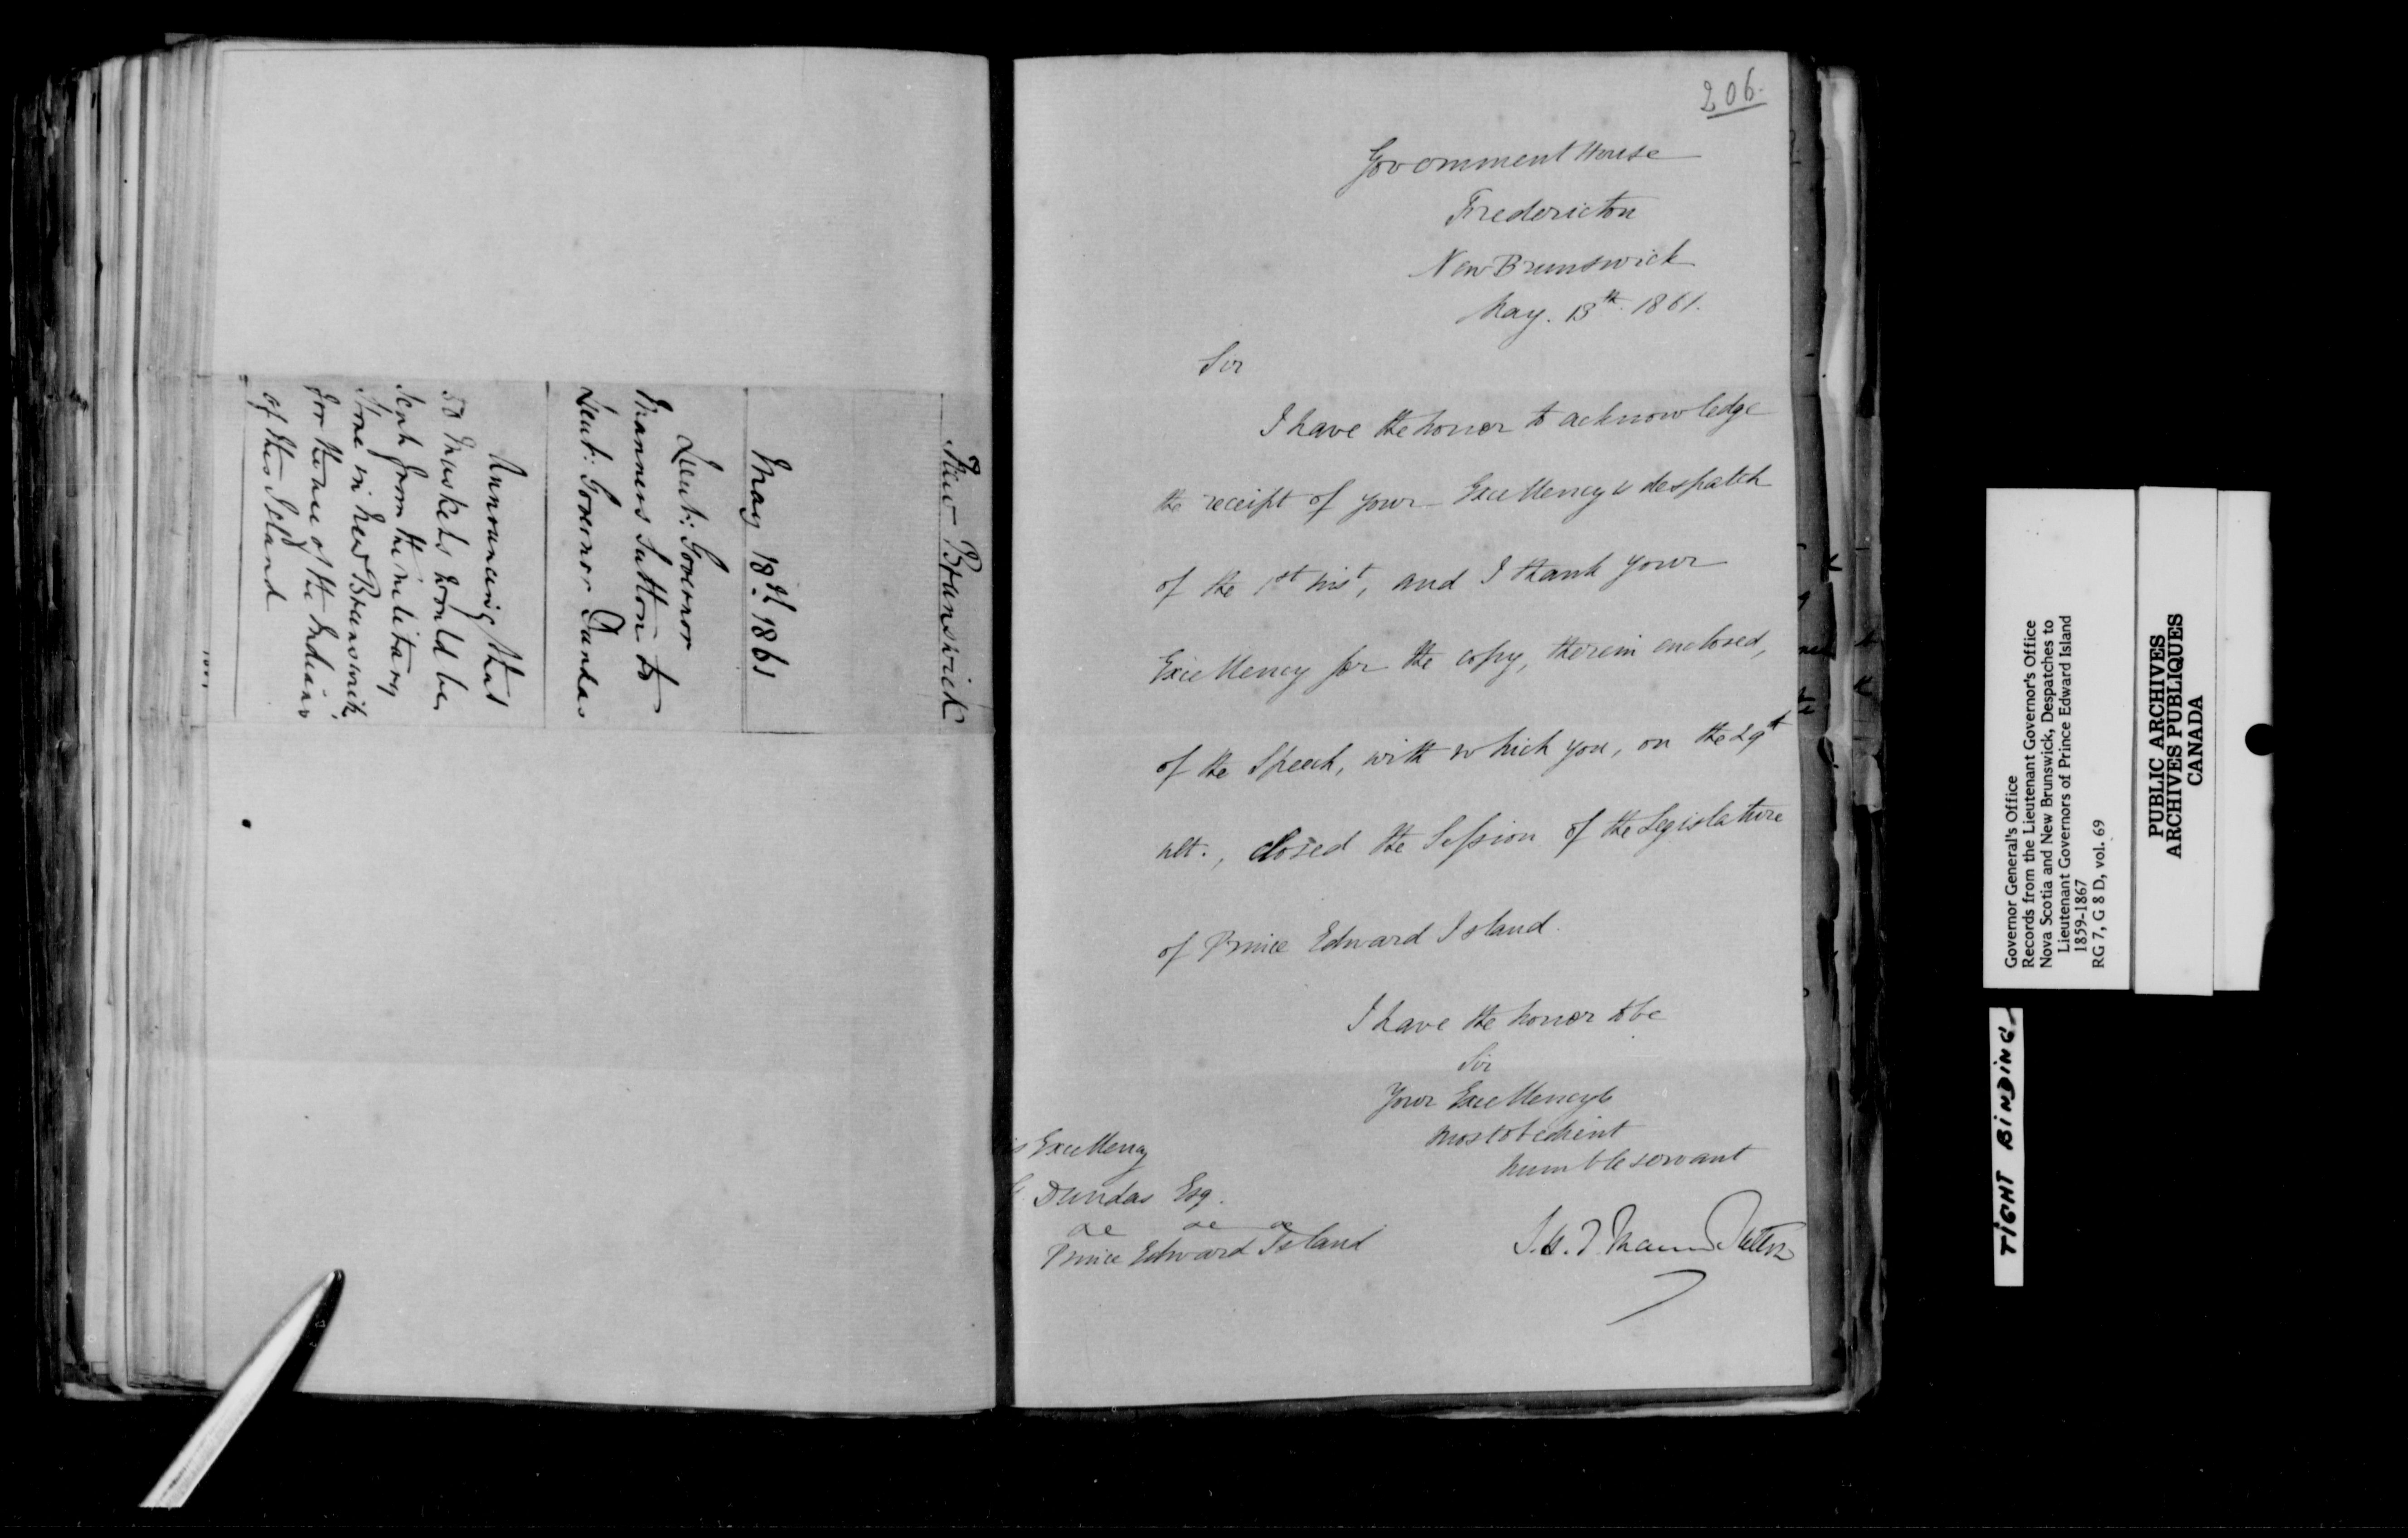 New Brunswick
May 18th 1861
Lieut: Governor
Manners Sutton to
Lieut: Governor Dundas
Announcing that
50 Muskets would be
sent from the military
Store in New Brunswick,
for the use of the Indians
of this Island
206.
Government House
Fredericton
New Brunswick
May. 13th. 1861.
Sir
I have the honor to acknowledge
the receipt of your Excellency's despatch
of the 1st inst, and I thank your
Excellency for the copy, therein enclosed,
of the Speech, with which you, on the 29th
ult., closed the Session of the Legislature
of Prince Edward Island.
I have the honor to be
Sir
Your Excellency's
most obedient
humble servant
J. H. T. Manners Sutton
is Excellency
Dundas Esq.
&c &c &c
Prince Edward Island
Governor General's Office
Records from the Lieutenant Governor's Office
Nova Scotia and New Brunswick, Despatches to
Lieutenant Governors of Prince Edward Island
1859-1867
RG 7, G 8 D, vol. 69
PUBLIC ARCHIVES
ARCHIVES PUBLIQUES
CANADA
TIGHT BINDING